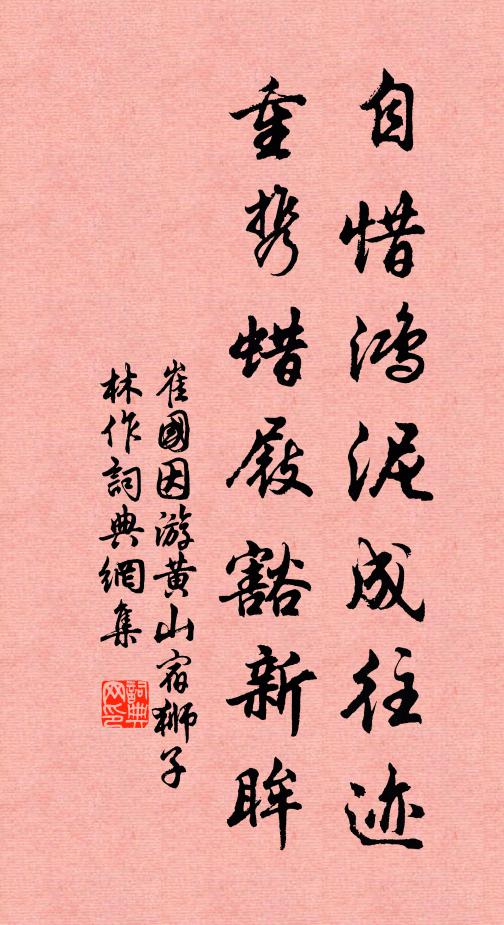 自惜鸿泥成往迹
重携蜡屐豁新眸
崔國因游黄山宿獅子
林作詞典網集
詞典网印